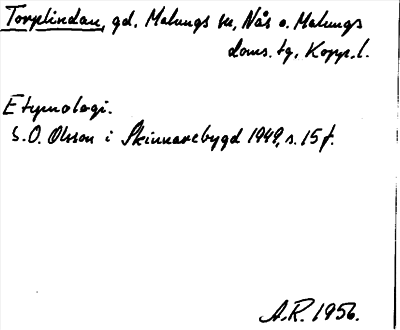 Torplindan, gd. Malungs sn, Nås o. Malungs
doms. tg, Kopp. l.
Etymologi.
S. O. Olsson i Skinnarebygd 1949, s. 15 f.
A. R. 1956.